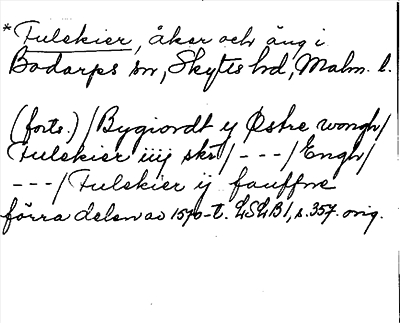 *Fulskier, åker och äng i
Bodarps sn, Skytts hd, Malm. l.
(forts.) / Bygiordt y Østre wongh /
Fulskier iiij skr / --- / Engh /
--- / Fulskier ij fauffne
förra delen av 1570-t. LSLB1, s. 357. orig.